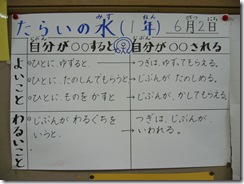 たらいの水（1年） 6月2日
自分が○○すると 自分が○○される
よいこと
・ひとに、ゆずると、 → つぎは、ゆずってもらえる。
・ひとに、たのしんでもらうと → じぶんが たのしめる。
・ひとに、ものを かすと → じぶんが、かしてもらえる。
わるいこと
・じぶんが わるぐちを いうと、 → つぎは、じぶんが、いわれる。